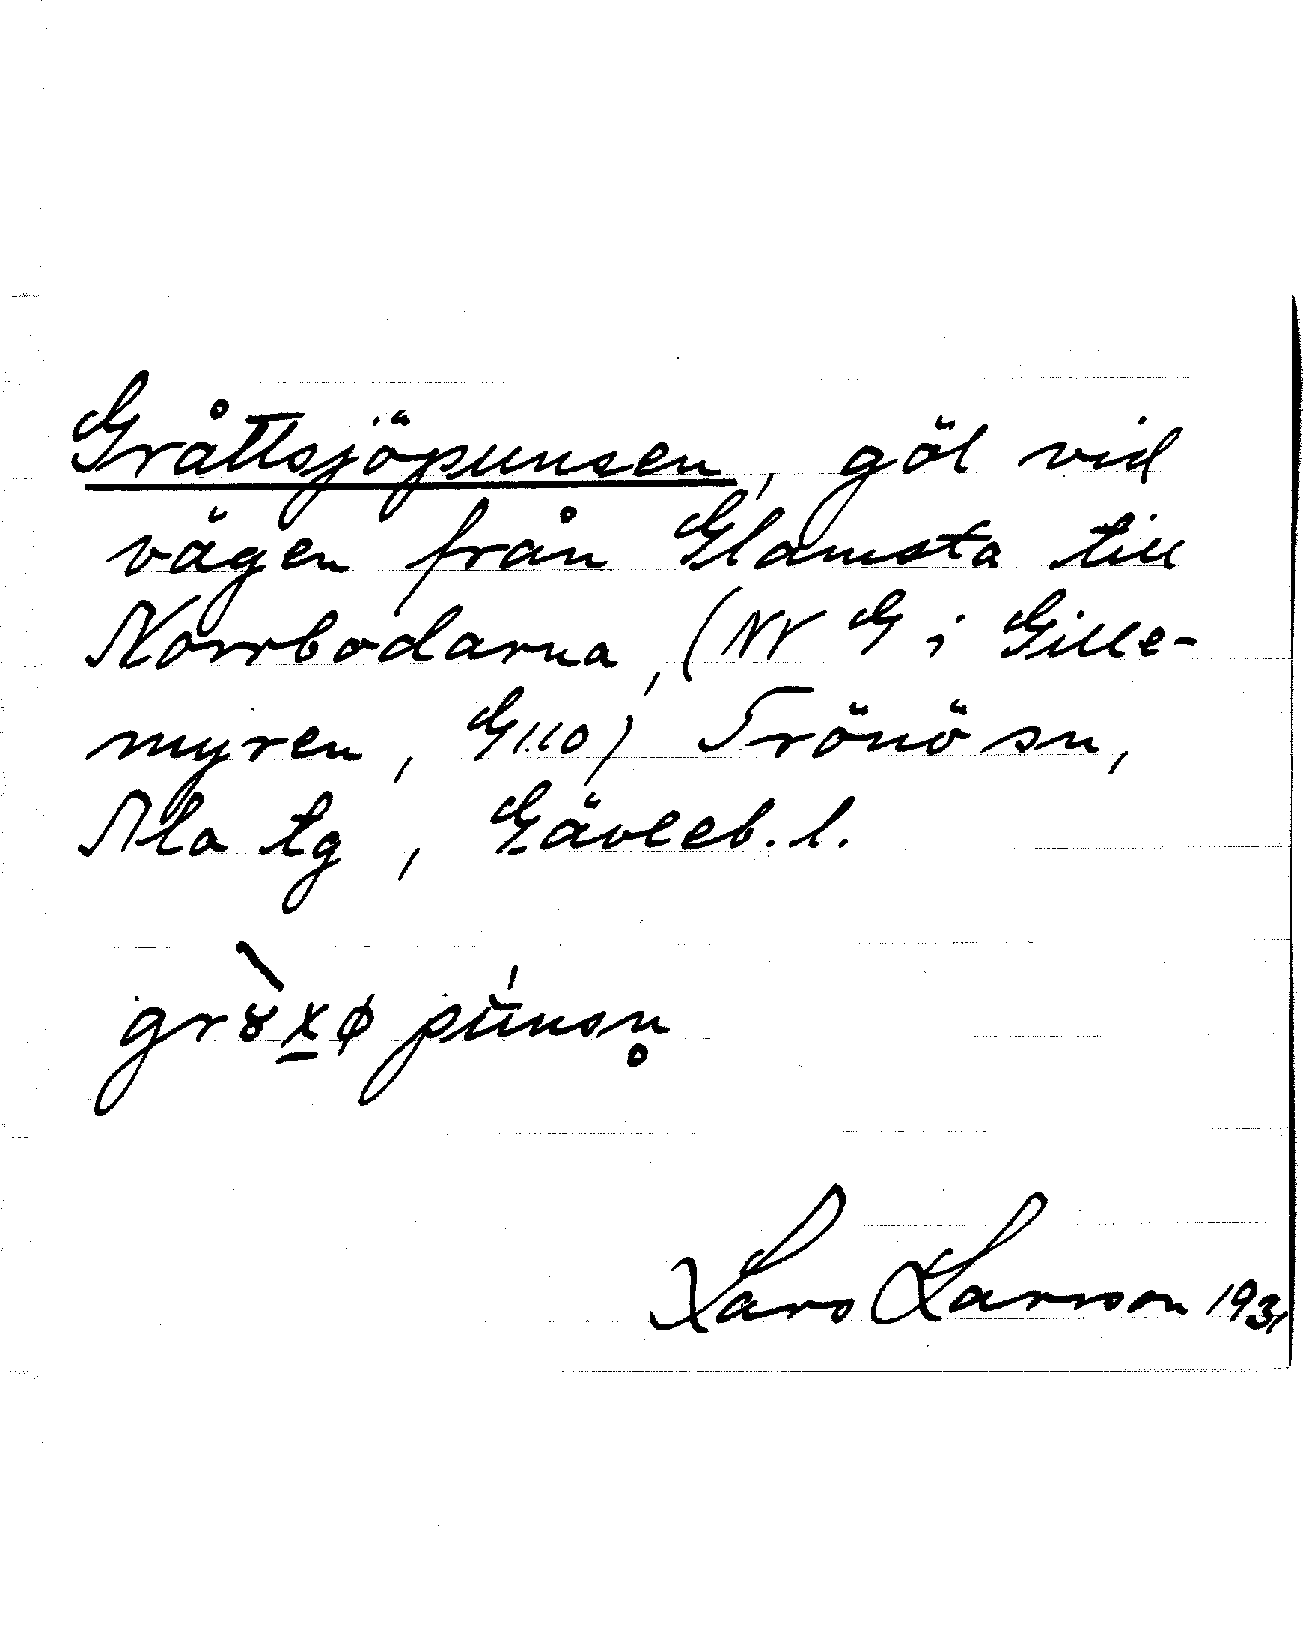 Gråttsjöpunsen, göl vid
vägen från Glamsta till
Norrbodarna, (NV G i Gille-
myren, G110) Trönö sn,
Ala tg, Gävleb. l.
grɤ̀χø pŭ́nsn̥
Lars Larsson 1931